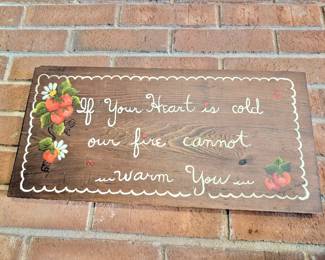 If Your Heart is cold
our fire cannot
...warm You...